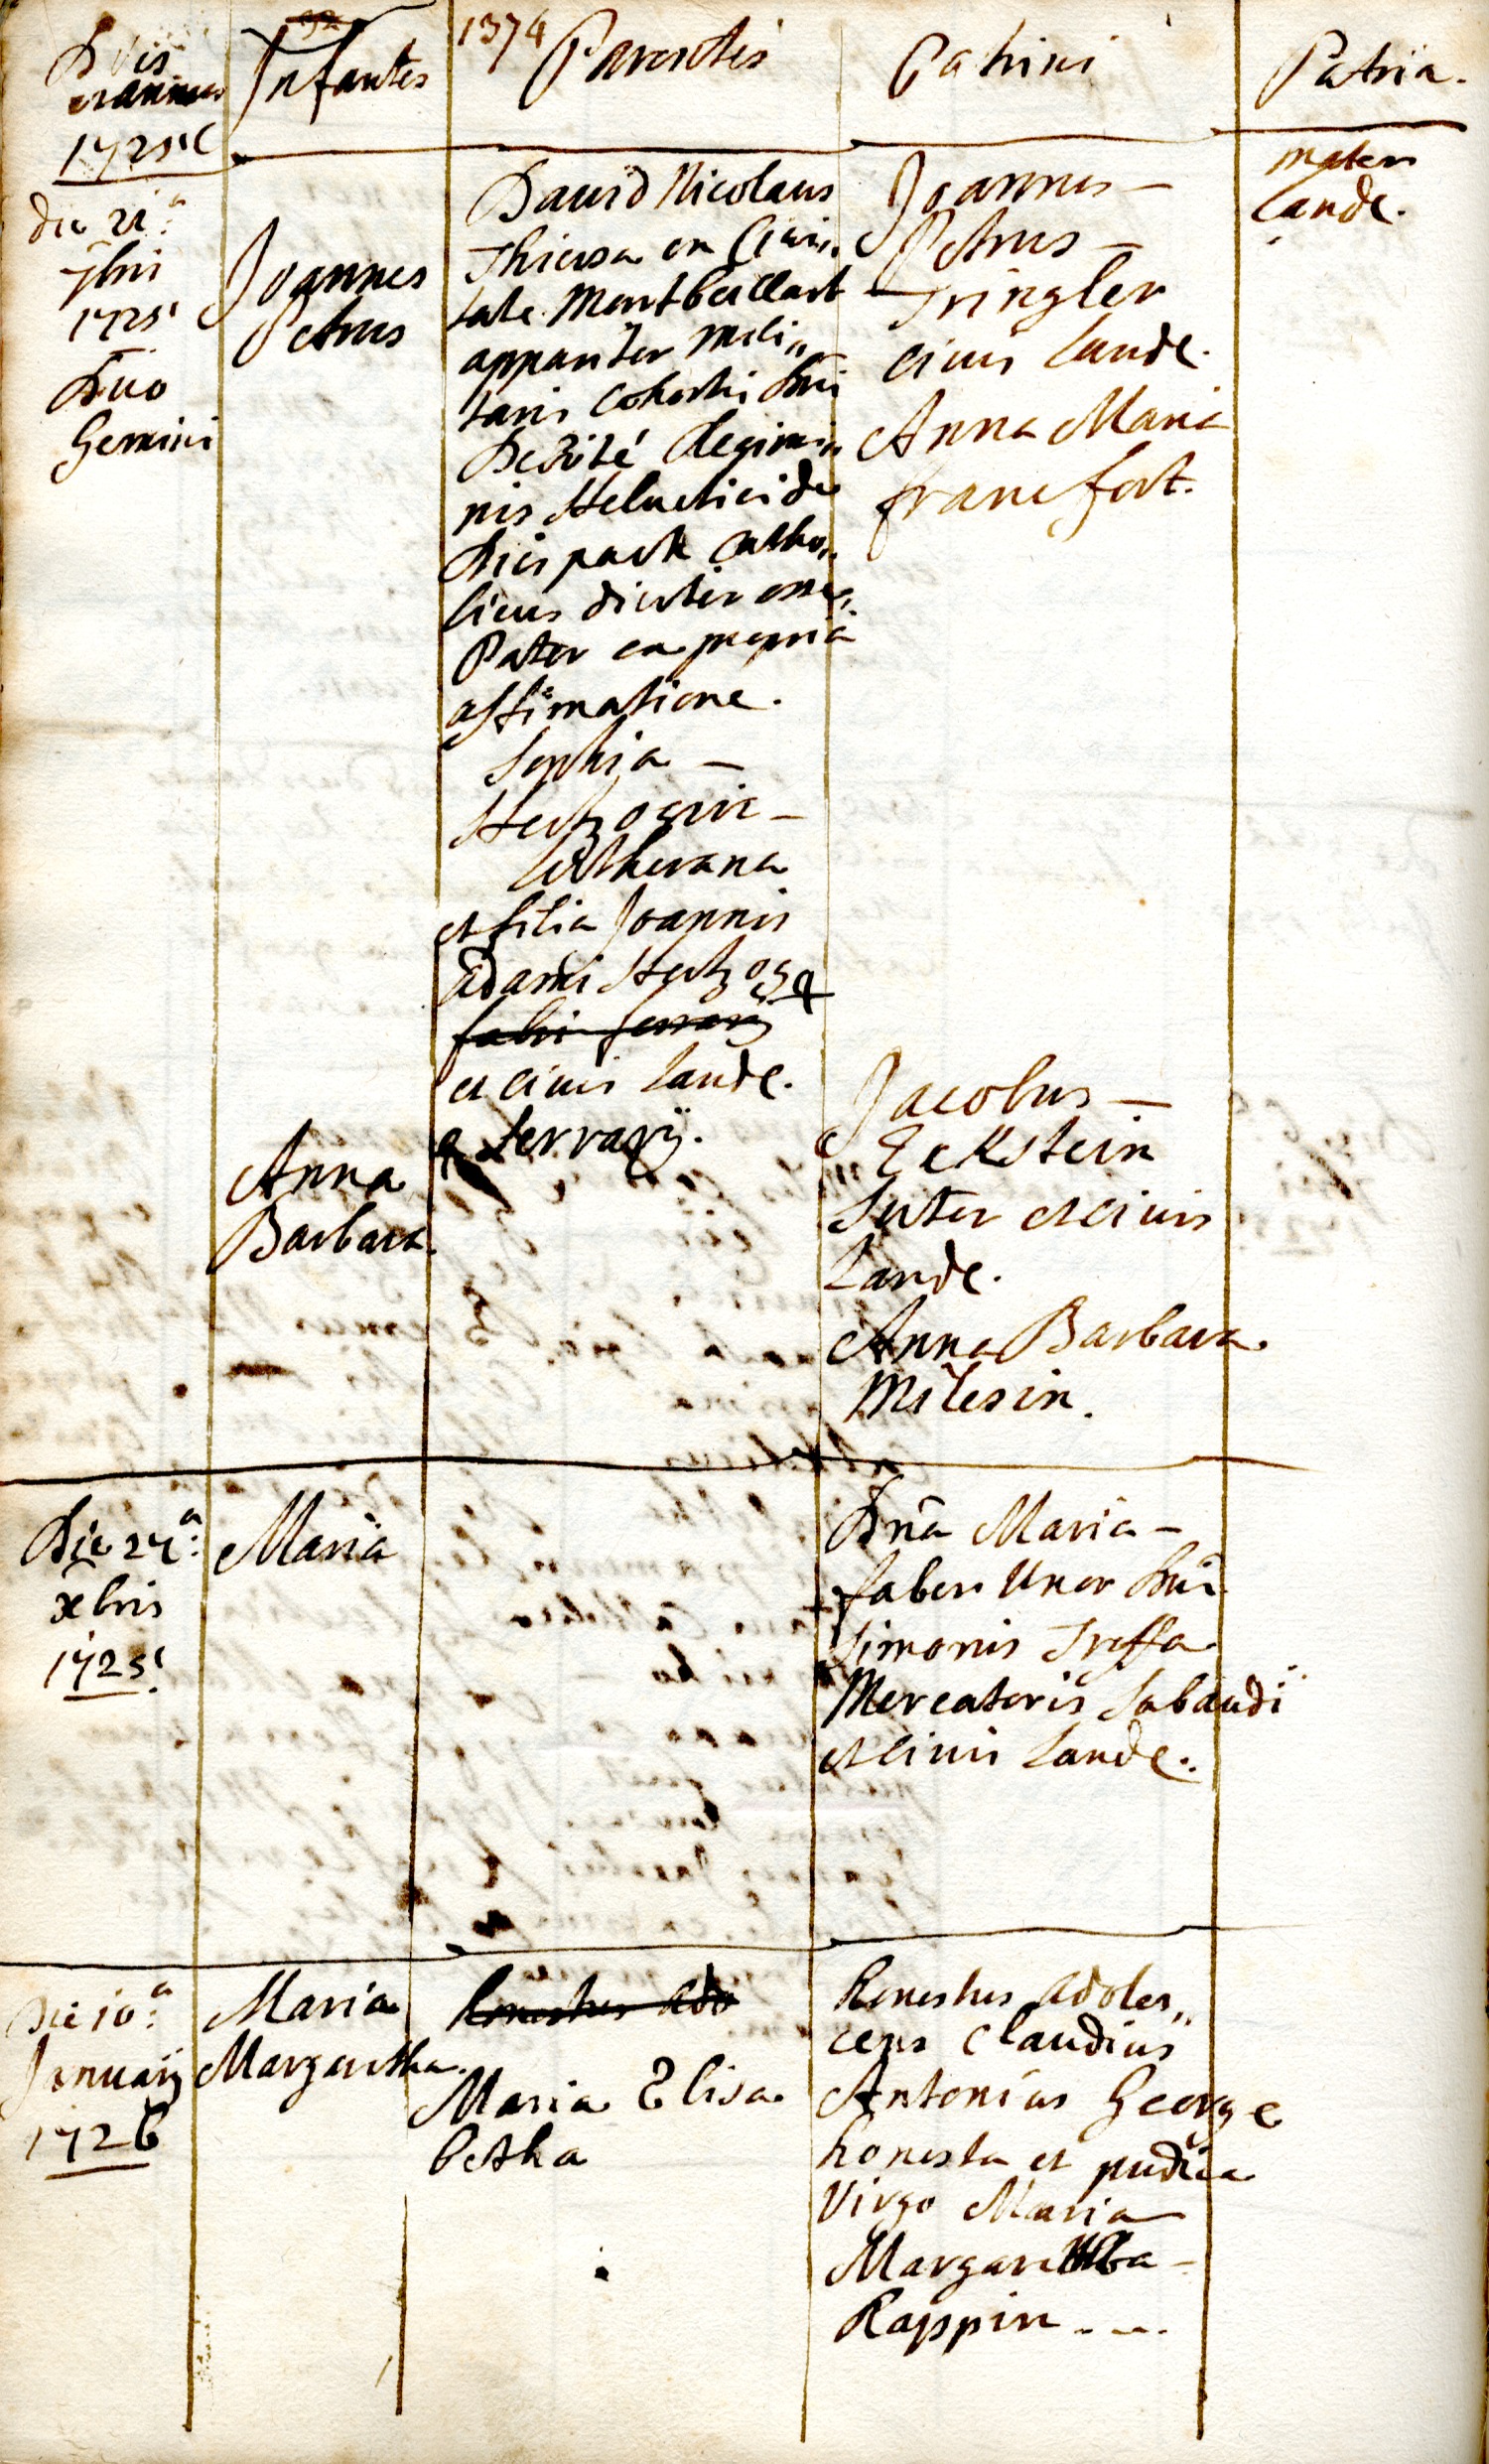 1374
Dies
et annus
1725
Infantes
Parentes
Patrini
Patria.
die 21.a
7bri
1725
Duo
Gemini
Joannes
Petrus
David Nicolaus
Thiersa ex Civi„
tate Montbeillart
apparitor mili„
taris Cohortis Dni
Dezité Regimi„
nis Helvetici de
Diespack Catho„
licus dicitur esse
Pater ex propria
affirmatione.
Sophia –
Hertzogin –
Lutherana
et filia Joannis
Adami Hertzog
fabri ferrarij
et civis Land.
ferrarij.
Joannes –
Petrus –
Tringler
civis Land.
Anna Maria
francfort.
mater
Land.
Anna
Barbara.
Jacobus –
Eckstein
Suter et civis
Land.
Anna Barbara
Milesin.
Die 24.a
xbris
1725
Maria
Dna Maria –
faber Uxor Dni
Simonis Treffa
Mercatoris Sabaudi
et civis Land.
Die 10.a
January
1726
Maria
Margaretha.
Honestus ado
Maria Elisa
betha
Honestus adoles„
cens Claudius
Antonius George
honesta et pudica
Virgo Maria
Margaretha –
Rappin